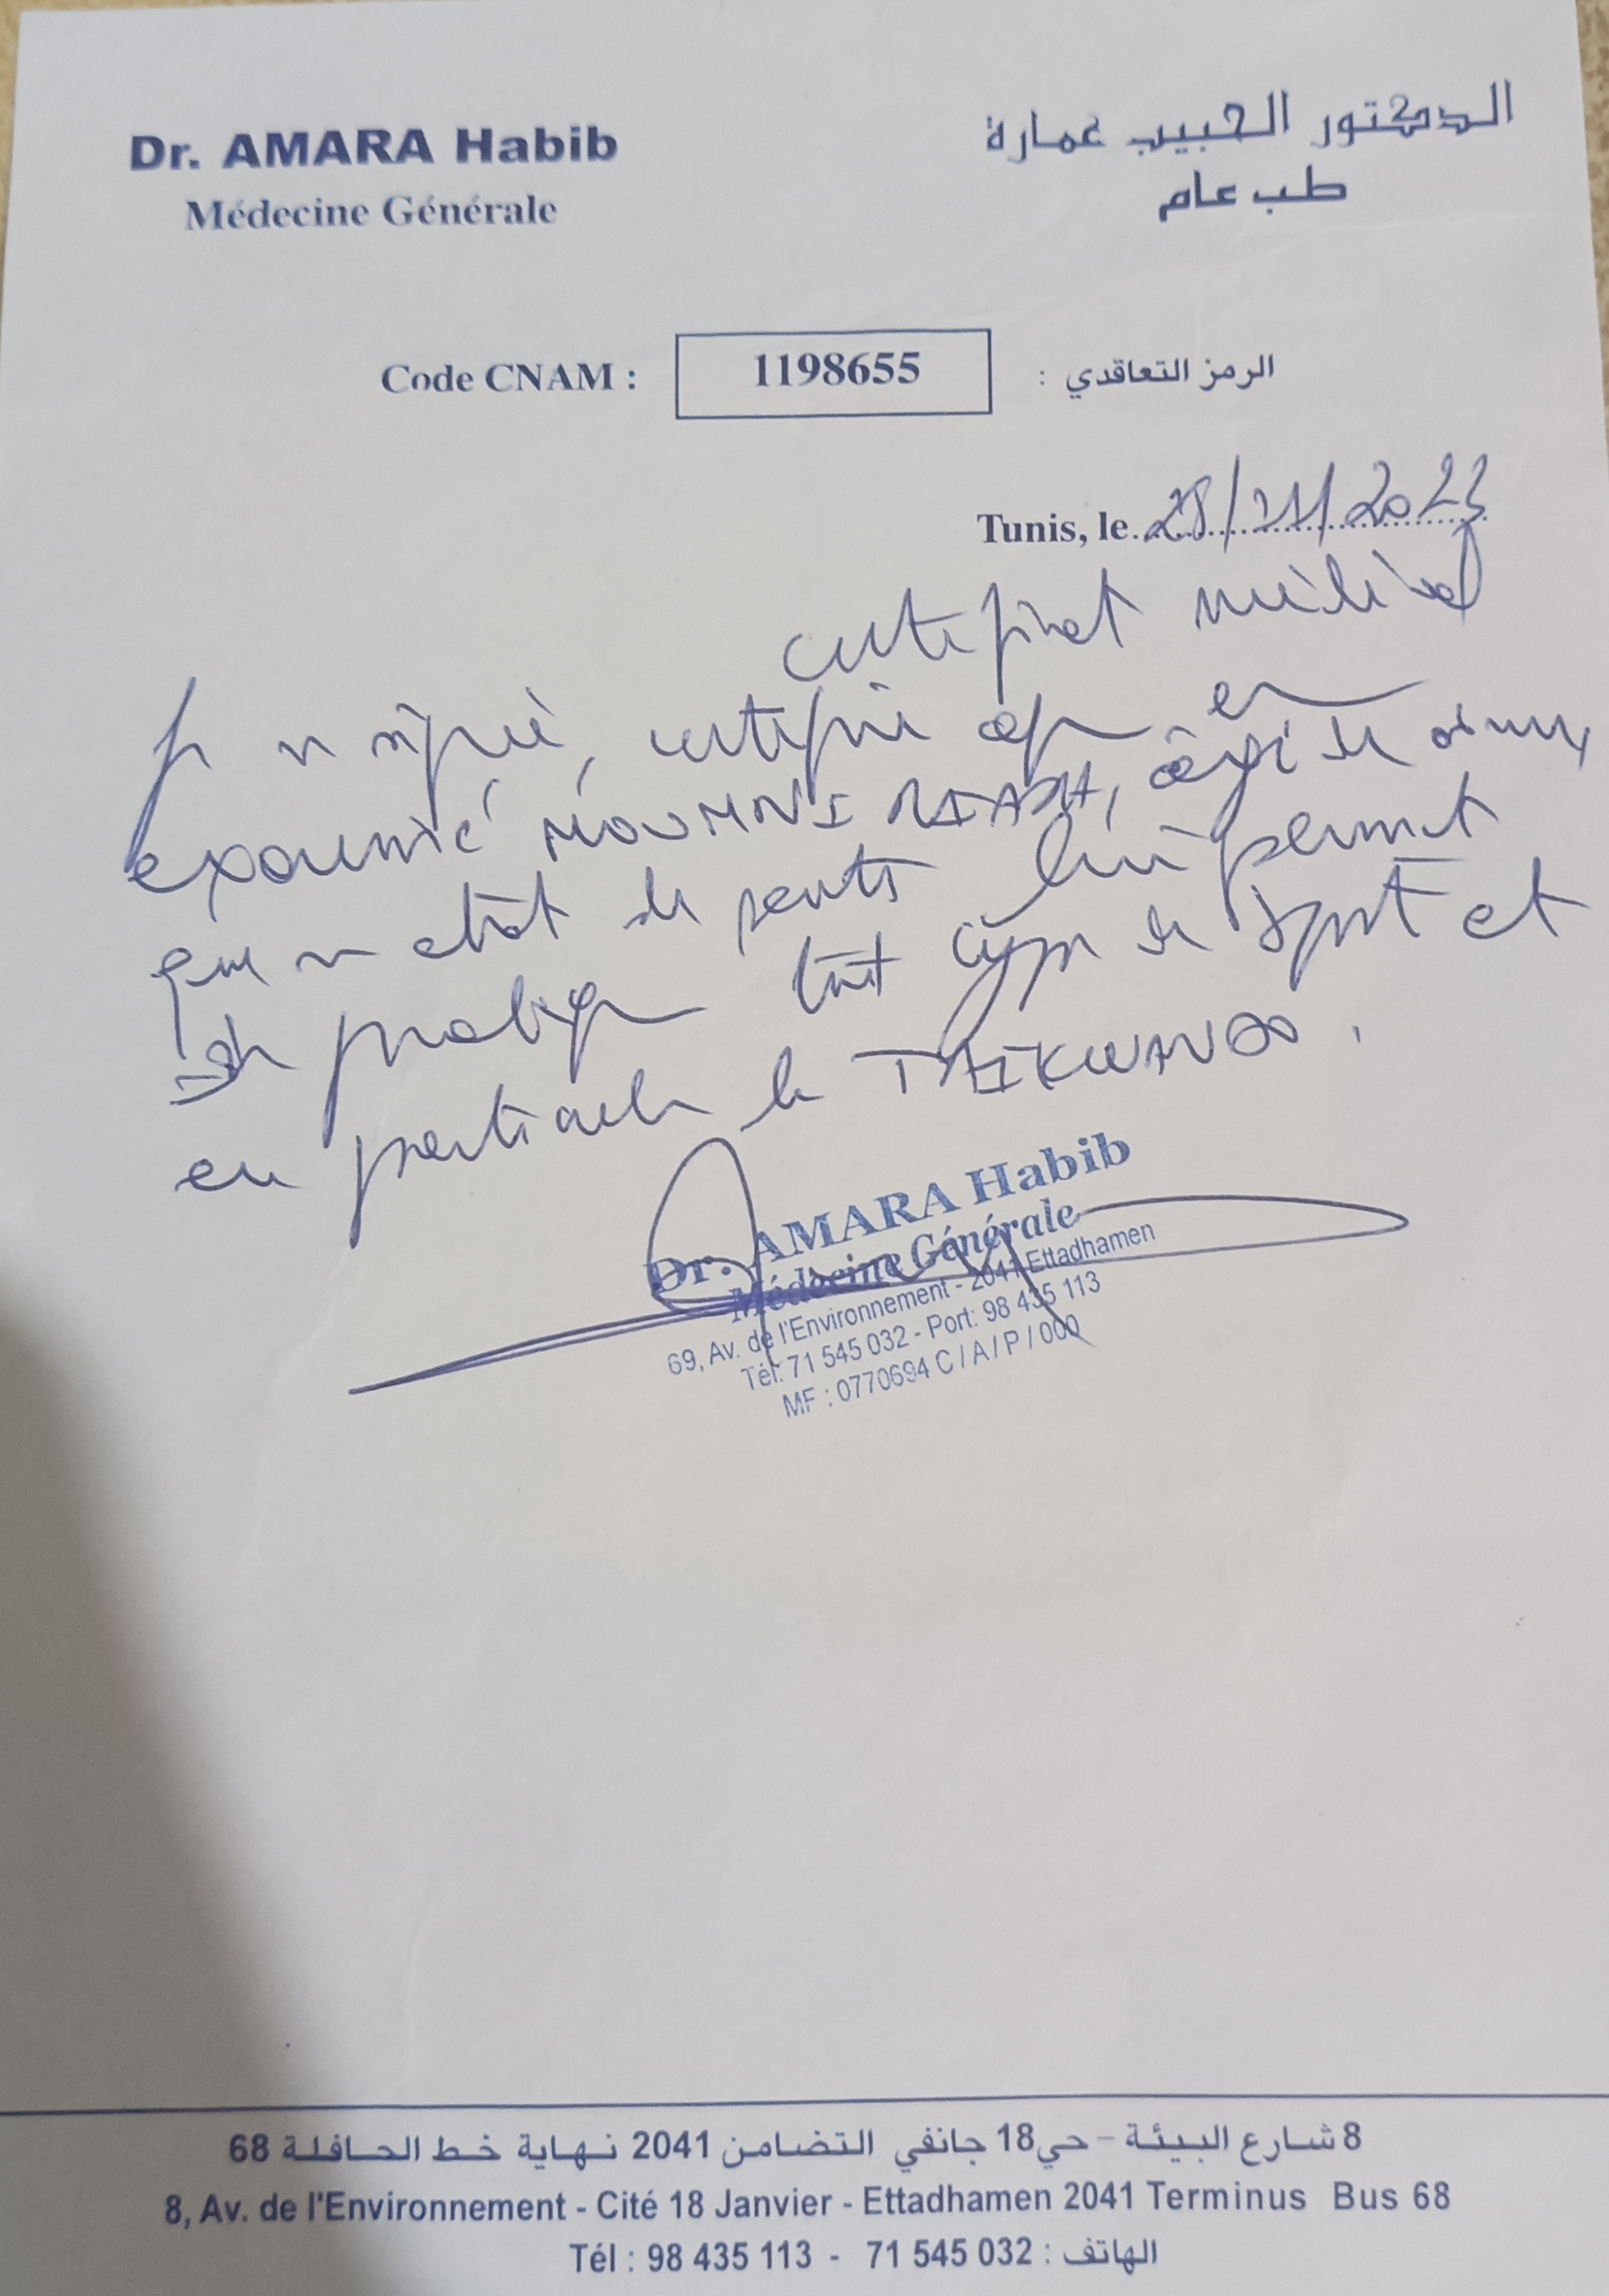 Dr. AMARA Habib
Médecine Générale
الدكتور الحبيب عمارة
طب عام
Code CNAM : 1198655 الرمز التعاقدي :
Tunis, le 28/11/2023
certificat médical
Je certifie
examiné âgé de
que état de santé lui permet
de pratiquer tout type de sport et
en particulier le
Dr. AMARA Habib
Médecine Générale
69, Av. de l'Environnement - 2041 Ettadhamen
Tél: 71 545 032 - Port: 98 435 113
MF : 0770694 C / A / P / 000
8 شارع البيئة - حي 18 جانفي التضامن 2041 نهاية خط الحافلة 68
8, Av. de l'Environnement - Cité 18 Janvier - Ettadhamen 2041 Terminus Bus 68
Tél : 98 435 113 - 71 545 032 : الهاتف